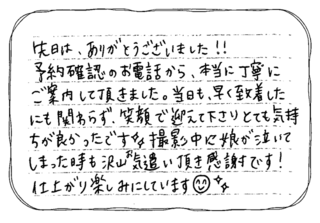 先日は、ありがとうございました!!
予約確認のお電話から、本当に丁寧に
ご案内して頂きました。当日も、早く到着した
にも関わらず、笑顔で迎えて下さりとても気持
ちが良かったです✨撮影中に娘が泣いて
しまった時も沢山お気遣い頂き感謝です!
仕上がり楽しみにしています☺✨